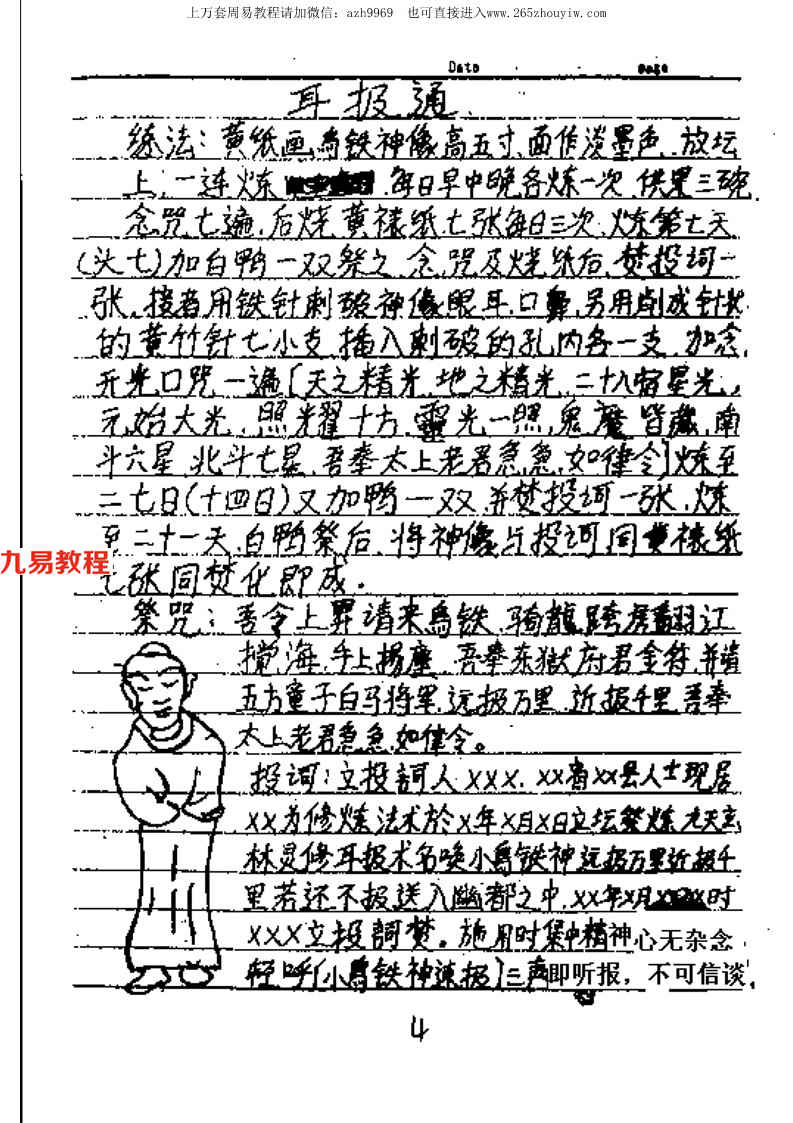 上万套周易教程请加微信：azh9969　也可直接进入www.265zhouyiw.com
Date
耳报通
练法：黄纸画乌铁神像高五寸、面作淡墨色、放坛
上，一连炼 每日早中晚各炼一次、供果三碗，
念咒七遍，后烧黄裱纸七张每日三次。炼第七天
(头七)加白鸭一双祭之、念咒及烧纸后、焚投词一
张。接着用铁针刺破神像眼、耳、口、鼻，另用削成针状
的黄竹针七小支，插入刺破的孔内各一支，加念，
开光口咒一遍〔天之精光、地之精光、二十八宿星光，
元始大光，照耀十方，靈光一照，鬼魔皆藏，南
斗六星、北斗七星，吾奉太上老君急急如律令〕炼至
二七日(十四日)又加鸭一双并焚投词一张，炼
至二十一天，白鸭祭后，将神像与投词同黄裱纸
九易教程
七张同焚化即成。
祭咒：吾令上界请来乌铁，骑龍跨虎翻江
搅海，手上拐 吾奉东獄府君金符，并请
五方童子白马将军，远报万里，近报千里吾奉
太上老君急急如律令。
投词：立投詞人XXX，XX省XX县人士现居
XX为修炼法术於X年X月X日立坛祭炼九天玄
林灵修耳报术名唤小乌铁神远报万里近报千
里若还不报送入幽都之中，XX年X月 时
XXX立投詞焚。施用时集中精神心无杂念
轻呼〔小乌铁神速报〕三声即听报，不可信谈，
4